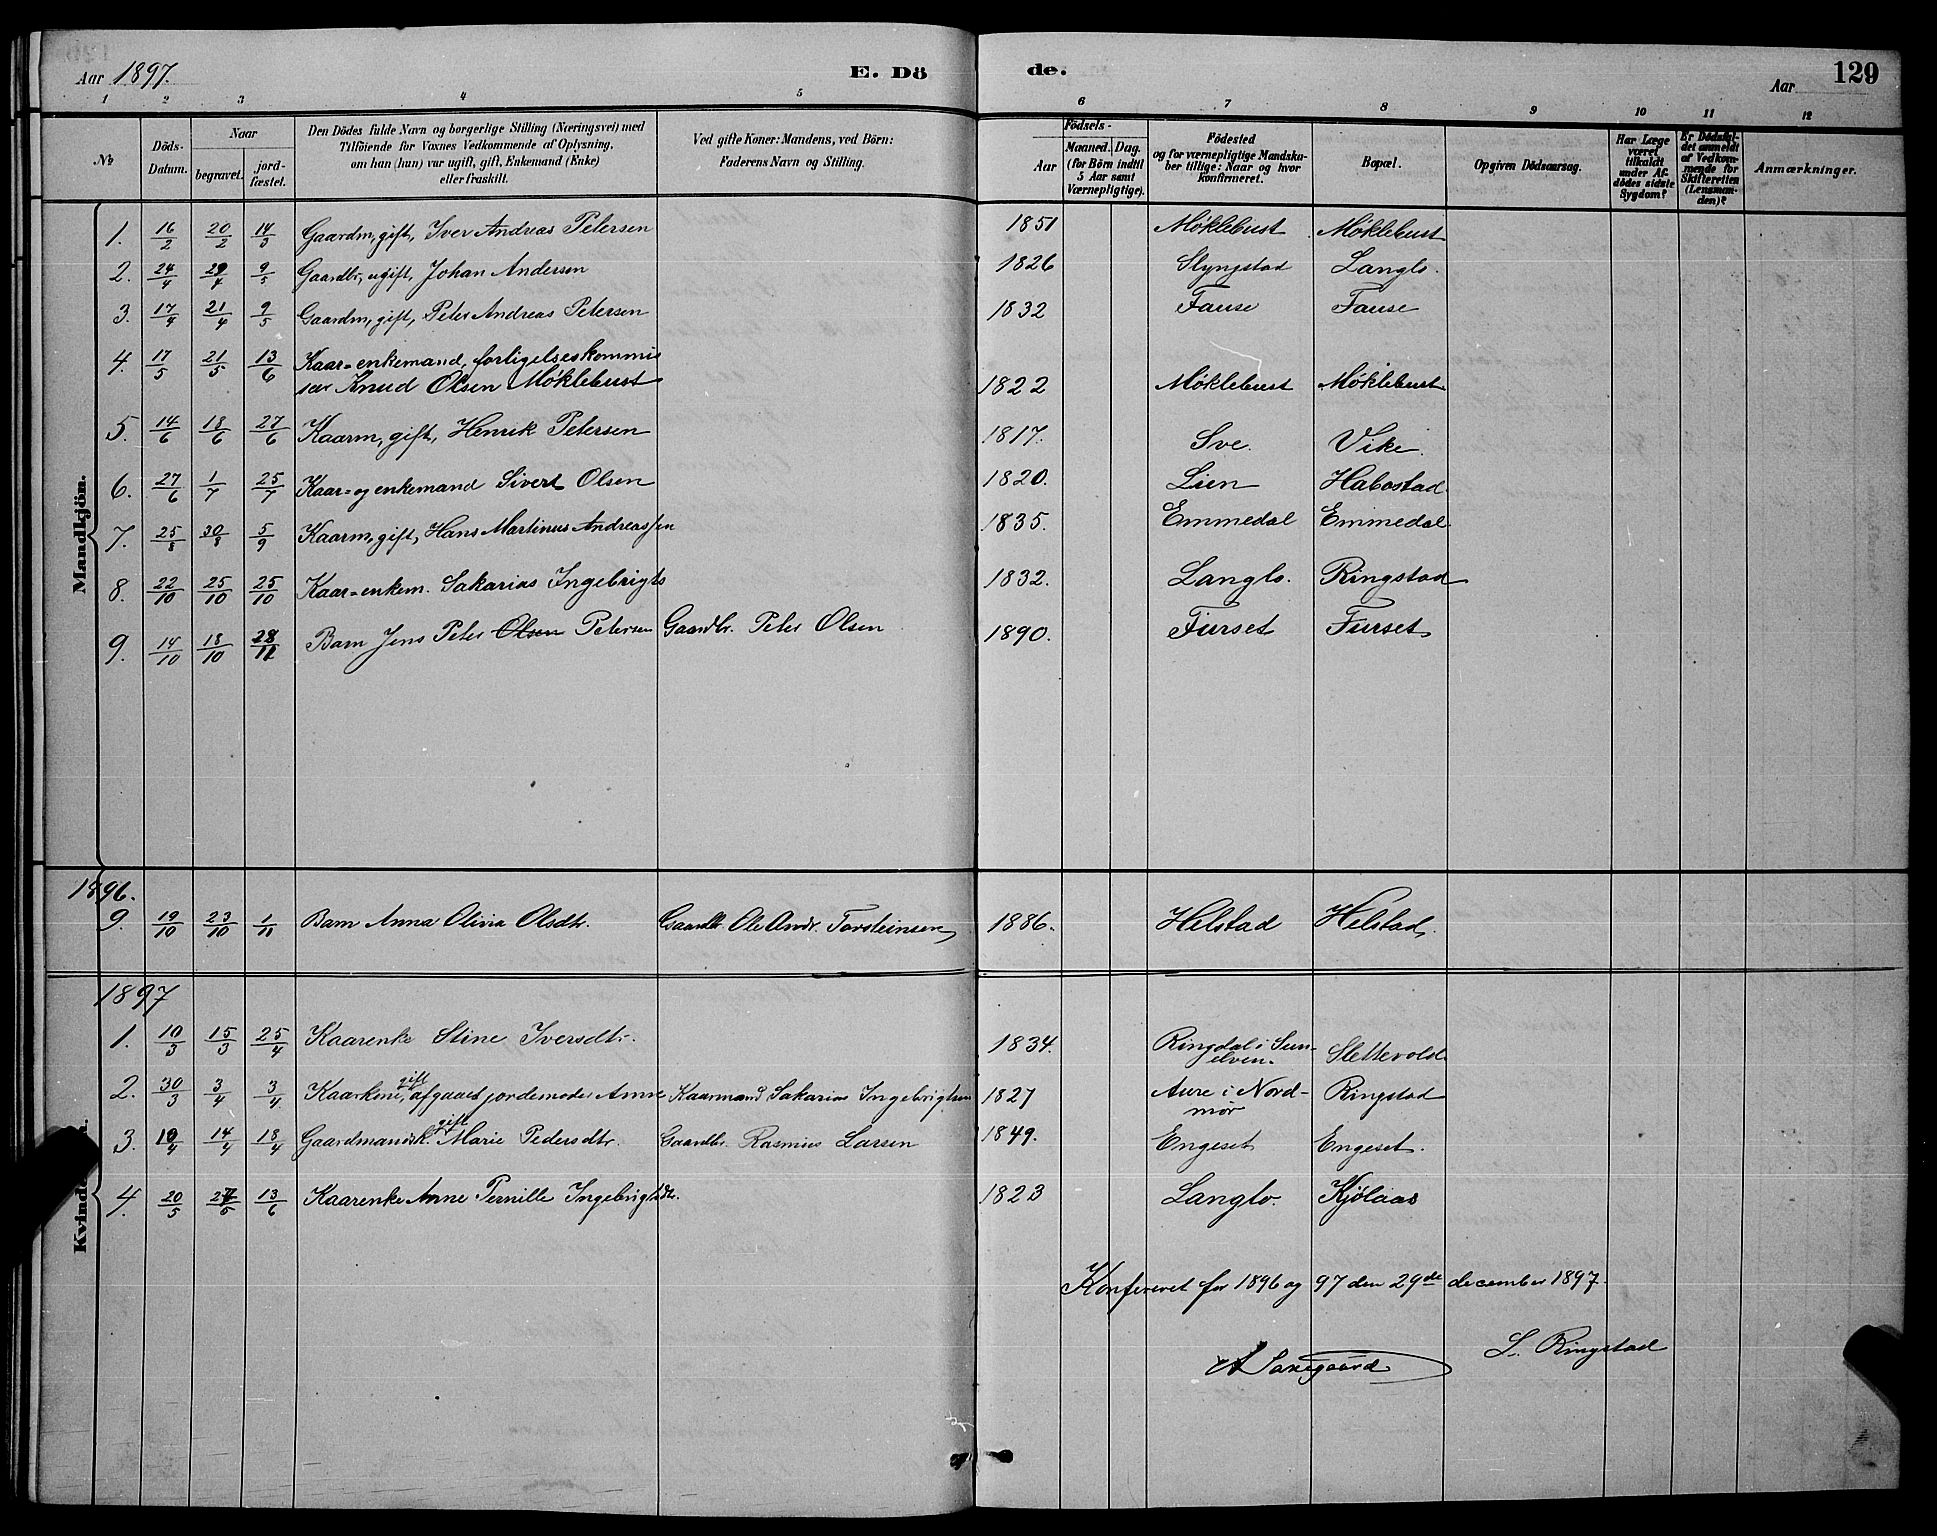 Aar 1897. E. Dö de. Aar 129
1 2 3 4 5 6 7 8 9 10 11 12
No
Döds-Datum.
Naar
begravet. jord-fæstet.
Den Dödes fulde Navn og borgerlige Stilling (Næringsvei) med
Tilföiende for Voxnes Vedkommende af Oplysning,
om han (hun) var ugift, gift, Enkemand (Enke)
eller fraskilt.
Ved gifte Koner: Mandens, ved Börn:
Faderens Navn og Stilling.
Födsels-
Aar
Maaned. Dag.
(for Börn indtil
5 Aar samt
Værnepligtige).
Födested
og for værnepligtige Mandska-
ber tillige: Naar og hvor
konfirmeret.
Bopæl.
Opgiven Dödsaarsag.
Har Læge
været
tilkaldt
under Af-
dödes sidste
Sygdom?
Er Dödsfal-
det anmeldt
af Vedkom-
mende for
Skifteretten
(Lensman-
den)?
Anmærkninger.
Mandkjön.
1. 16/2 20/2 14/3 Gaardm, gift, Iver Andreas Petersen 1851 Møklebust Møklebust
2. 24/4 29/4 9/5 Gaardbr, ugift, Johan Andersen 1826 Slyngstad Langlo.
3. 17/4 21/4 9/5 Gaardm, gift, Peter Andreas Petersen 1832 Fause Fause
4. 17/5 21/5 13/6 Kaar=enkemand, forligelseskommis
sær Knud Olsen Møklebust 1822 Møklebust Møklebust
5. 14/6 18/6 27/6 Kaarm, gift, Henrik Petersen 1817. Sve. Vike.
6. 27/6 1/7 25/7 Kaar= og enkemand Sivert Olsen 1820. Lien Habostad
7. 25/8 30/8 5/9 Kaarm, gift, Hans Martinus Andreassen 1835. Emmedal Emmedal
8. 22/10 25/10 25/10 Kaar=enkem. Sakarias Ingebrigts 1832. Langlo. Ringstad
9. 14/10 18/10 28/11 Barn Jens Peter Olsen Petersen Gaardbr. Peter Olsen 1890. Furset Furset
1896.
9. 19/10 23/10 1/11 Barn Anna Olivia Olsdtr. Gaardbr. Ole Andr. Torsteinsen 1886. Helstad Helstad.
1897
Kvindekjön.
1. 10/3 15/3 25/4 Kaarenke Stine Iversdtr. 1834. Ringdal i Sun-
elven. Slettevold
gift
2. 30/3 3/4 3/4 Kaarkone, afgaaet jordemoder Anne Kaarmand Sakarias Ingebrigtsen 1827 Aure i Nord-
mør Ringstad
gift
3. 10/4 14/4 18/4 Gaardmandsk. Marie Pedersdtr. Gaardbr. Rasmus Larsen 1849. Engeset Engeset.
4. 20/5 27/5 13/6 Kaarenke Anne Pernille Ingebrigtsdtr. 1823 Langlo. Kjölaas
Konfereret for 1896 og 97 den 29de december 1897.
L. Ringstad